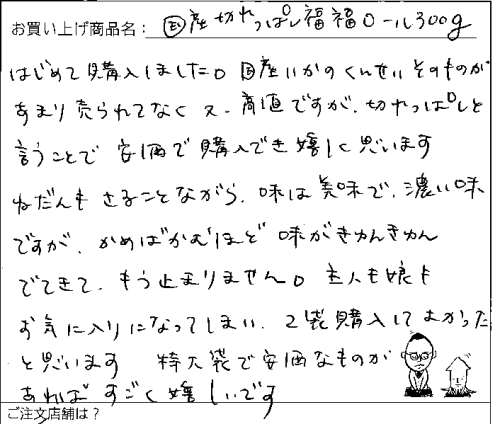 お買い上げ商品名： 国産切れっぱし福福ロール300g
はじめて購入しました。国産いかのくんせいそのものが
あまり売られてなく又、高値ですが、切れっぱしと
言うことで 安価で購入でき嬉しく思います
ねだんもさることながら、味は美味で、濃い味
ですが、かめばかむほど 味がきゅんきゅん
でてきて、もう止まりません。主人も娘も
お気に入りになってしまい、2袋購入してよかった
と思います 特大袋で安価なものが
あればすごく嬉しいです
ご注文店舗は？